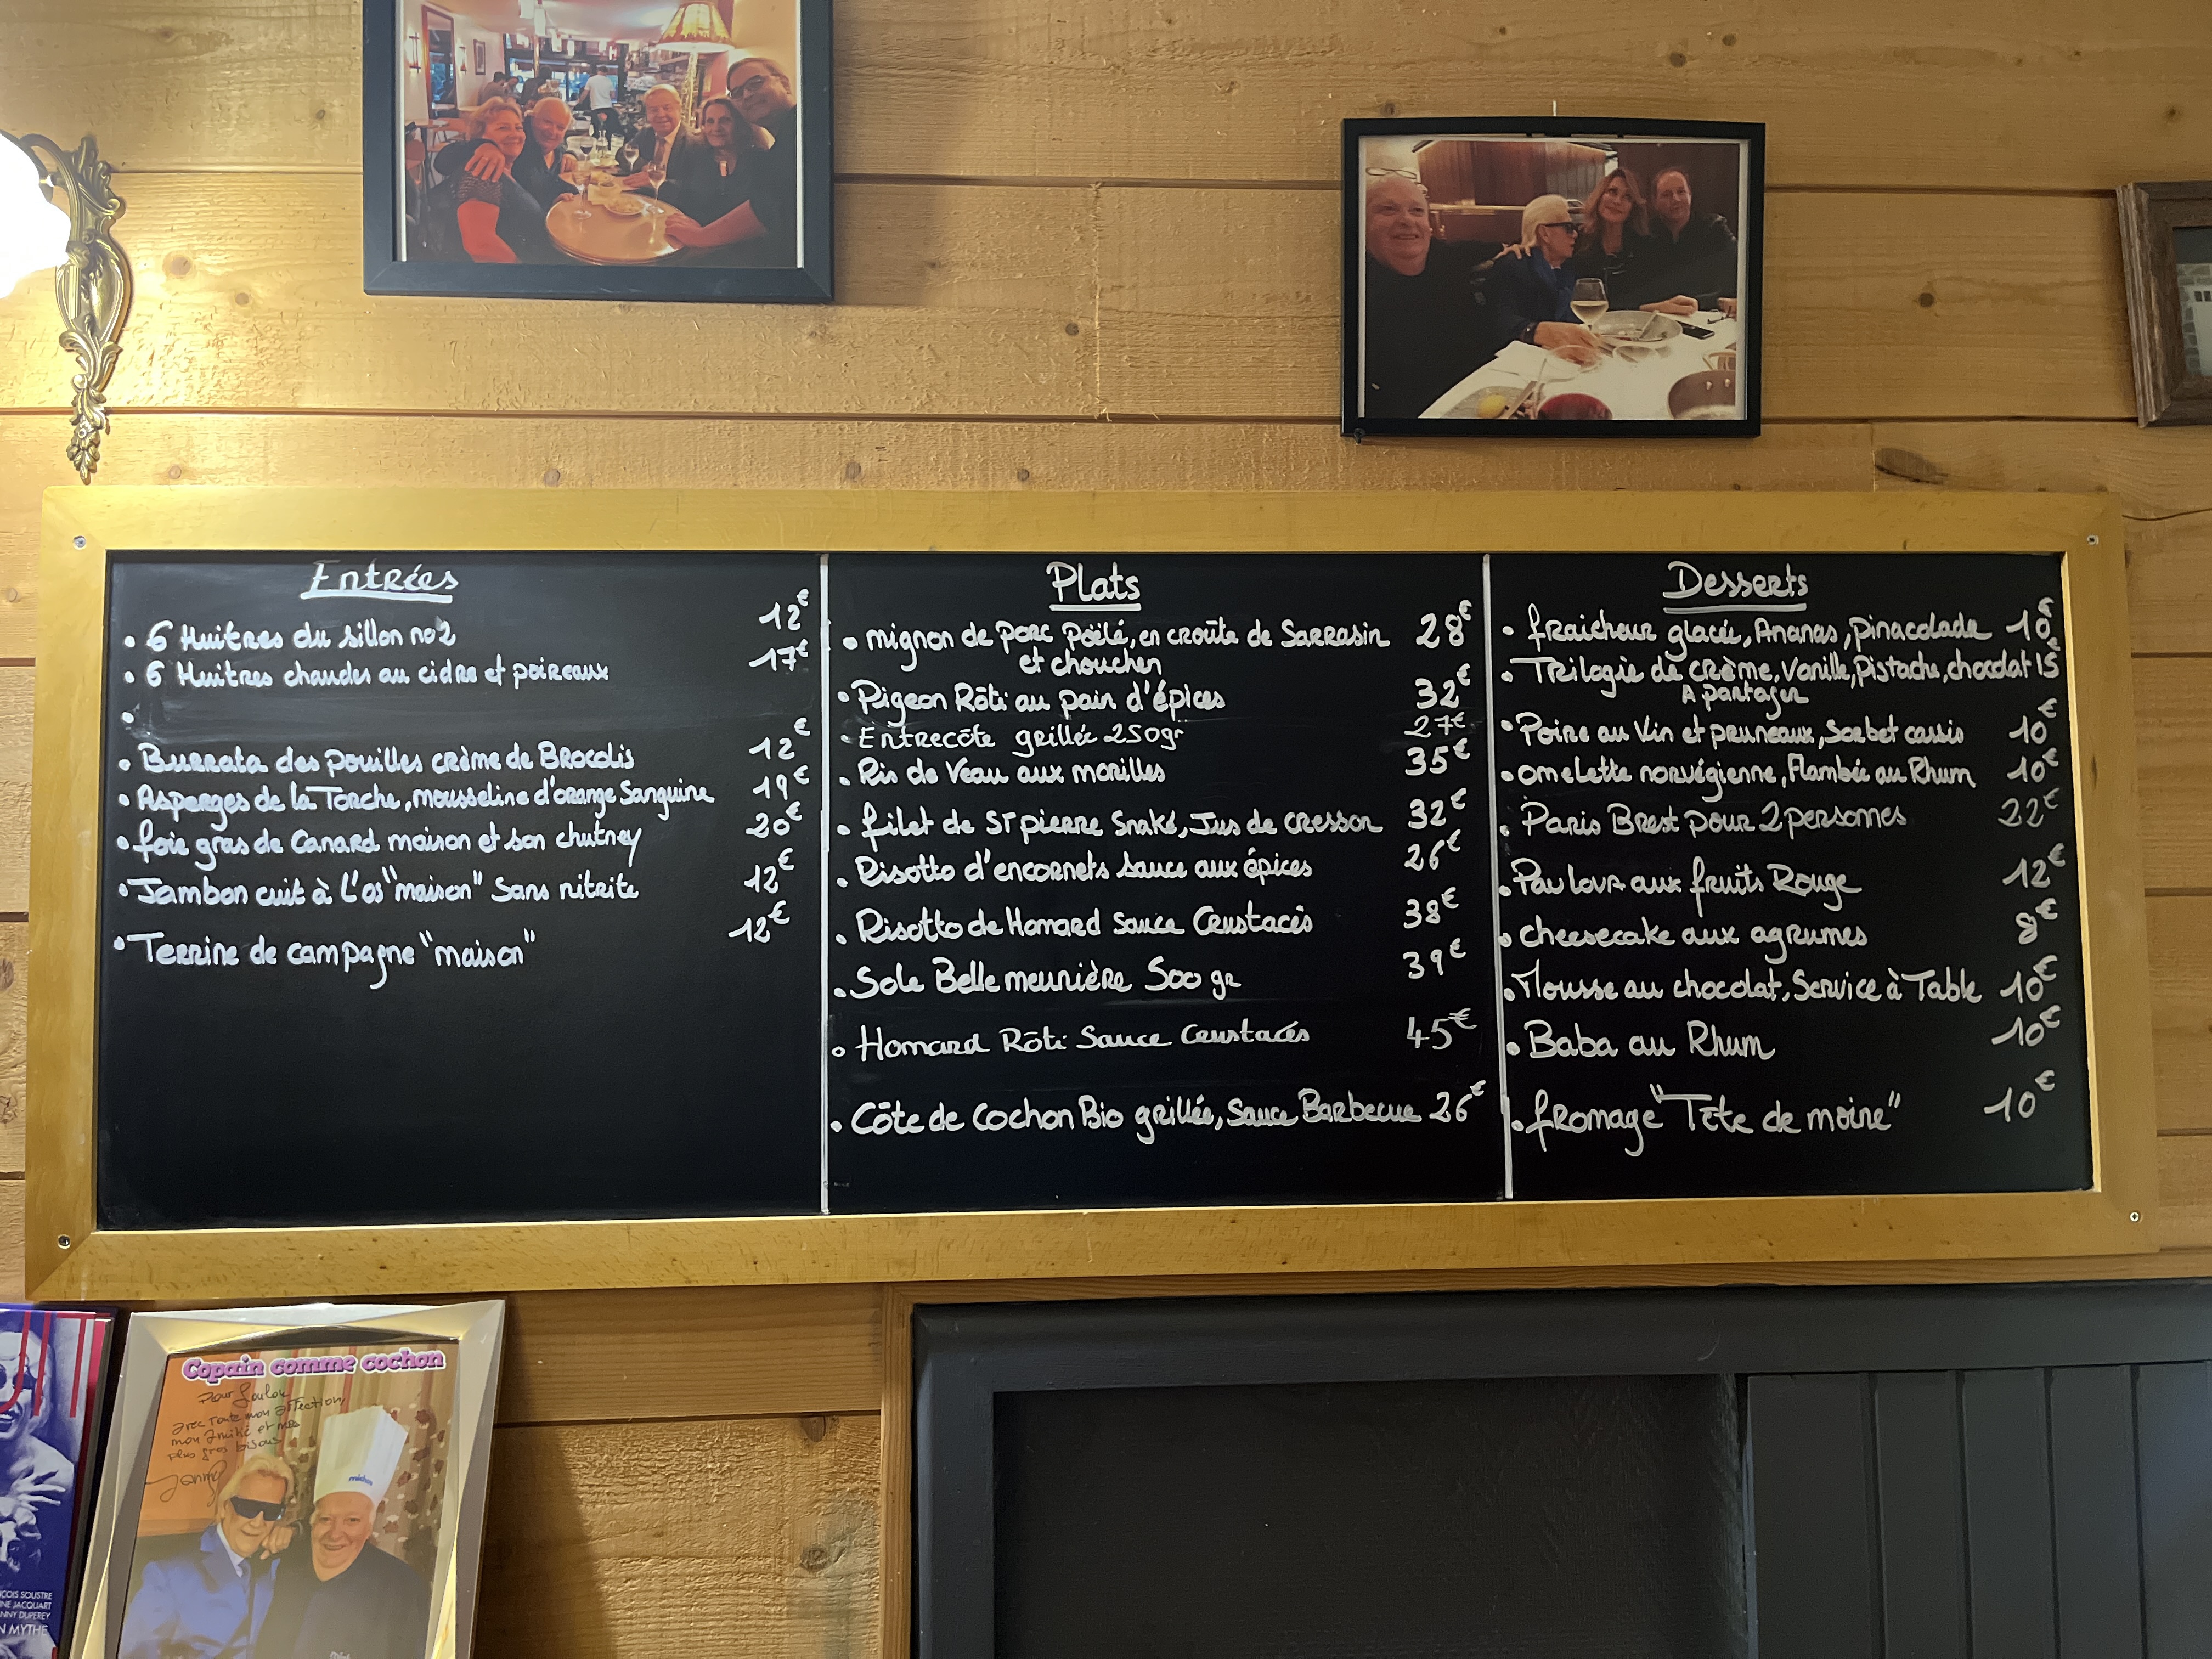 Entrées
• 6 Huitres du sillon no2 12€
• 6 Huitres chaudes au cidre et poireaux 17€
•
• Burrata des pouilles crème de Brocolis 12€
• Asperges de la Torche, mousseline d'orange Sanguine 19€
• foie gras de Canard maison et son chutney 20€
• Jambon cuit à L'os "maison" Sans nitrite 12€
• Terrine de campagne "maison" 12€
Plats
• mignon de porc Poëlé, en croûte de Sarrasin 28€
et chouchen
• Pigeon Rôti au pain d'épices 32€
• Entrecôte grillée 250gr 27€
• Ris de Veau aux morilles 35€
• filet de St pierre Snaké, Jus de cresson 32€
• Risotto d'encornets sauce aux épices 26€
• Risotto de Homard Sauce Crustacés 38€
• Sole Belle meunière 500 gr 39€
• Homard Rôti Sauce Crustacés 45€
• Côte de Cochon Bio grillée, Sauce Barbecue 26€
Desserts
• fraicheur glacée, Ananas, pinacolada 10€
• Trilogie de crème, Vanille, Pistache, chocolat 15€
A partager
• Poire au Vin et pruneaux, Sorbet cassis 10€
• omelette norvégienne, Flambée au Rhum 10€
• Paris Brest pour 2 personnes 22€
• Pavlova aux fruits Rouge 12€
• cheesecake aux agrumes 8€
• Mousse au chocolat, Service à Table 10€
• Baba au Rhum 10€
• fromage "Tête de moine" 10€
Copain comme cochon
Pour Loulou
avec toute mon affection,
mon amitié et mes
plus gros bisous
michou
ÇOIS SOUSTRE
NE JACQUART
NNY DUPEREY
N MYTHE